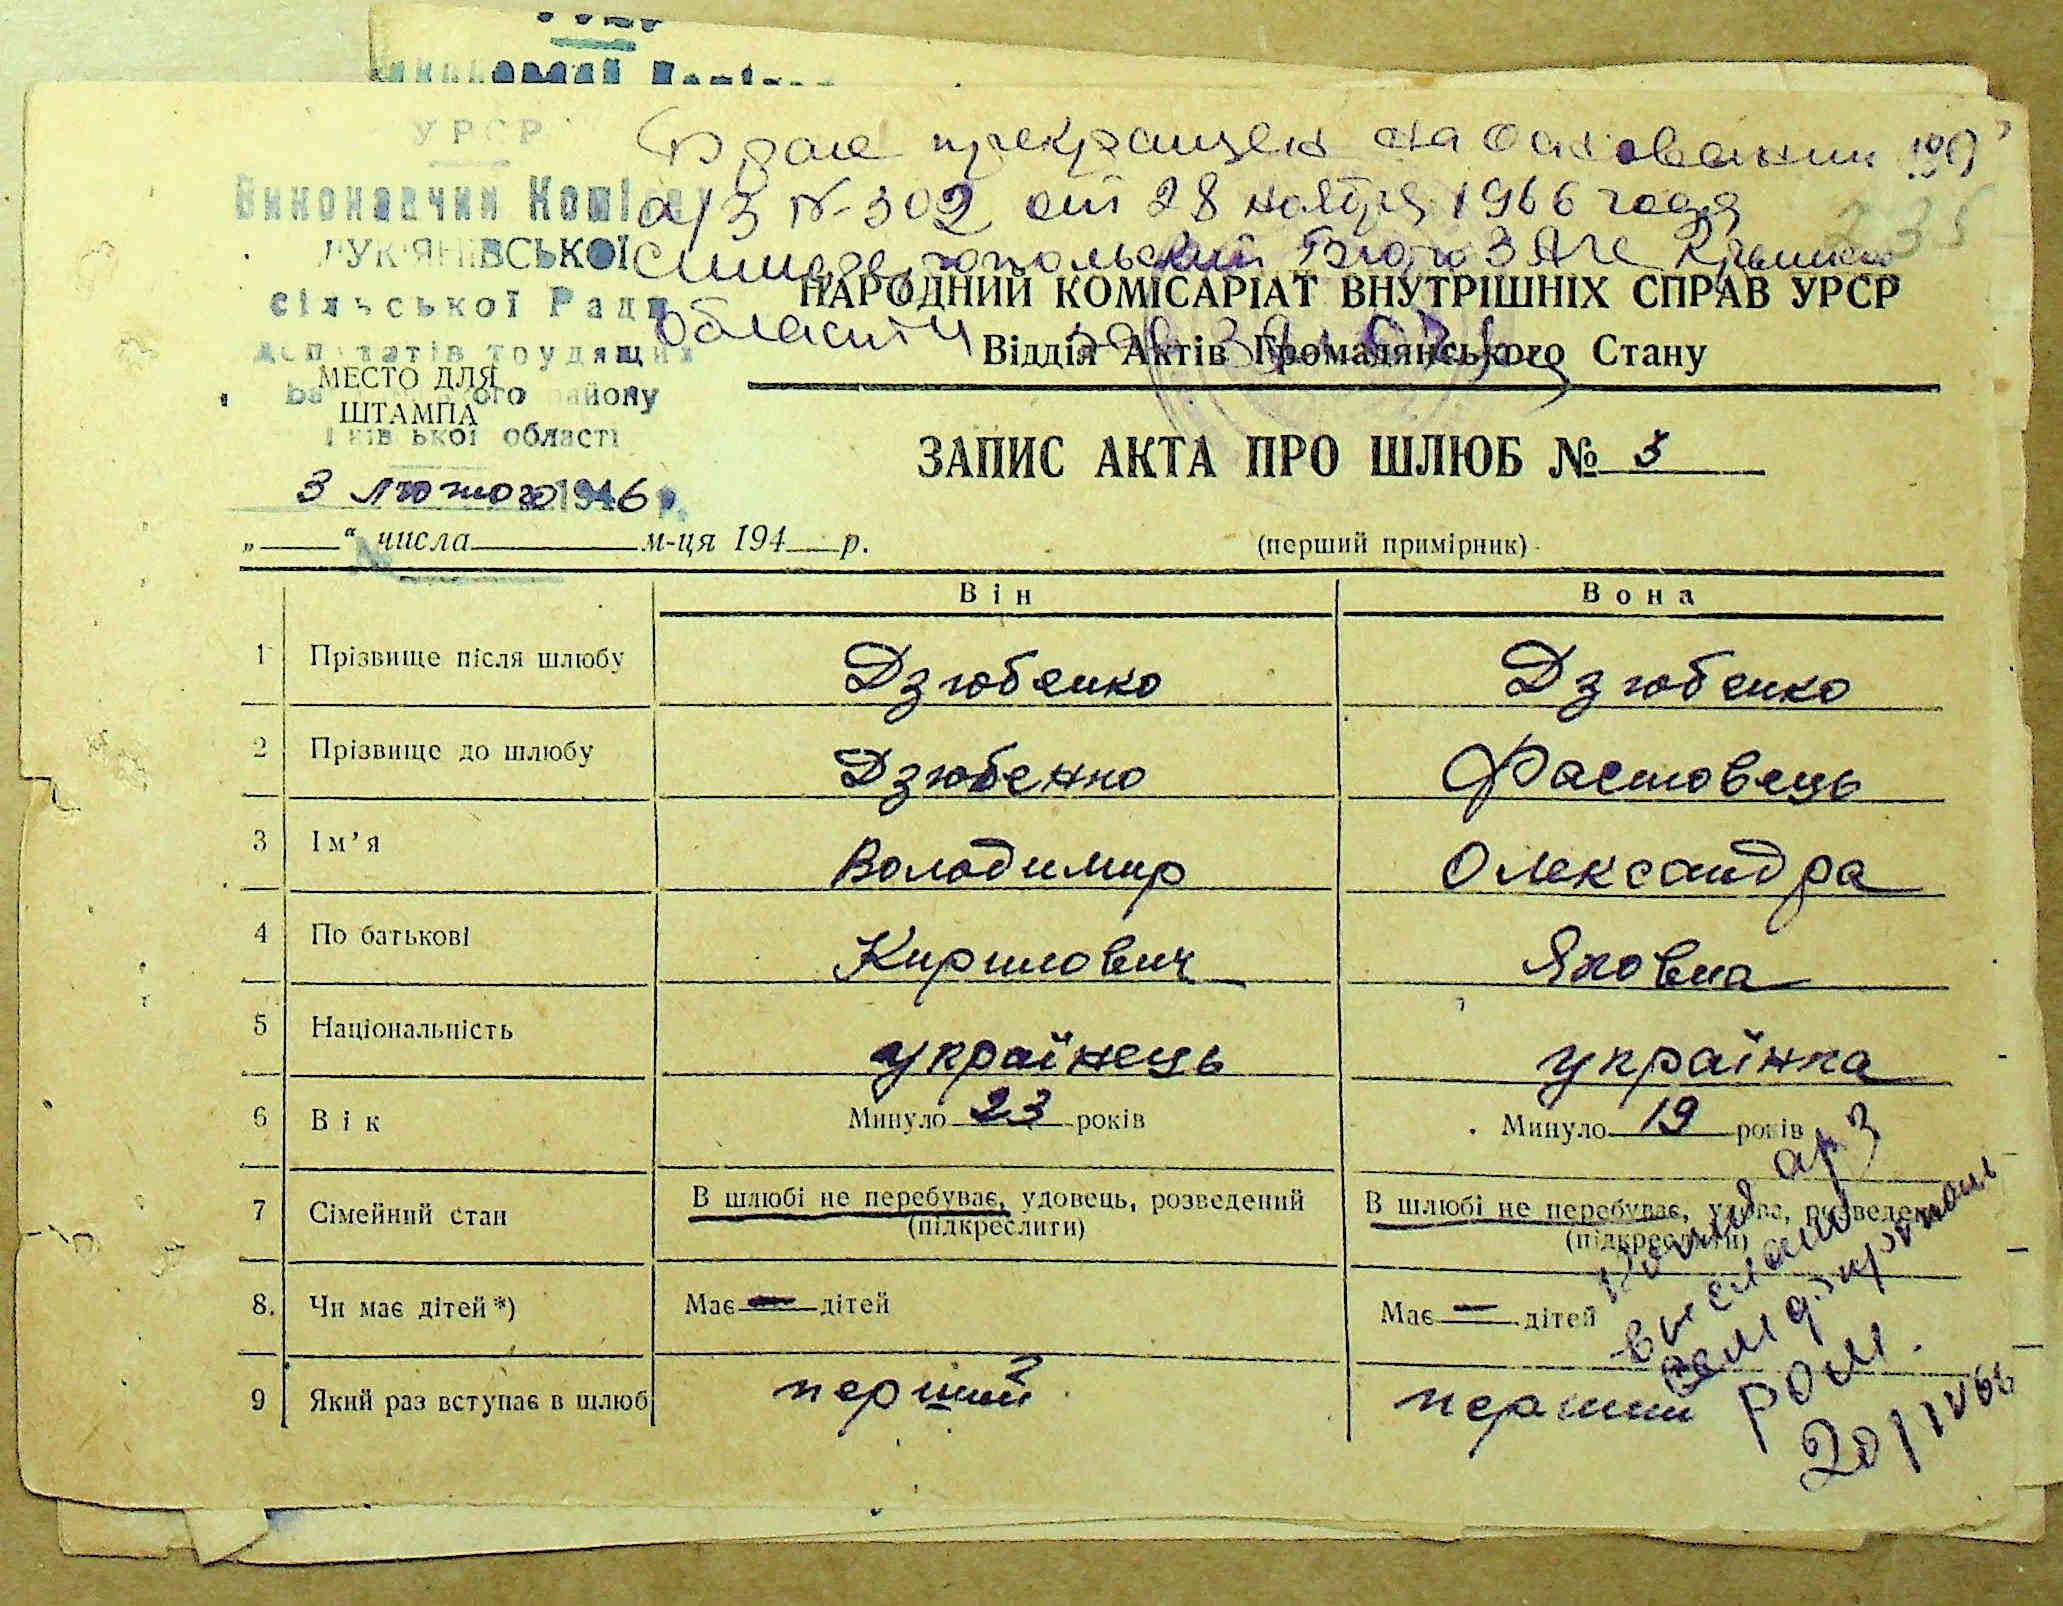 УРСР
Виконавчий Комітет
ЛУК'ЯНІВСЬКОЇ
сільської Ради
депутатів трудящих
району
області
МЕСТО ДЛЯ
ШТАМПА
3 лютого 1946 р.
„ “ числа м-ця 194 р.
Брак прекращен на основании
а/з №-302 от 28 ноября 1966 года
Симферопольский Бюро ЗАГС Крымской
области
235
НАРОДНИЙ КОМІСАРІАТ ВНУТРІШНІХ СПРАВ УРСР
Відділ Актів Громадянського Стану
ЗАПИС АКТА ПРО ШЛЮБ № 3
(перший примірник)
Він Вона
1 Прізвище після шлюбу Дзюбенко Дзюбенко
2 Прізвище до шлюбу Дзюбенко Фастовець
3 Ім’я Володимир Олександра
4 По батькові Кирилович Яковна
5 Національність українець українка
6 Вік Минуло 23 років Минуло 19 років
7 Сімейний стан В шлюбі не перебуває, удовець, розведений В шлюбі не перебуває, удова, розведена
(підкреслити) (підкреслити)
8. Чи має дітей*) Має — дітей Має — дітей
9 Який раз вступає в шлюб перший перший